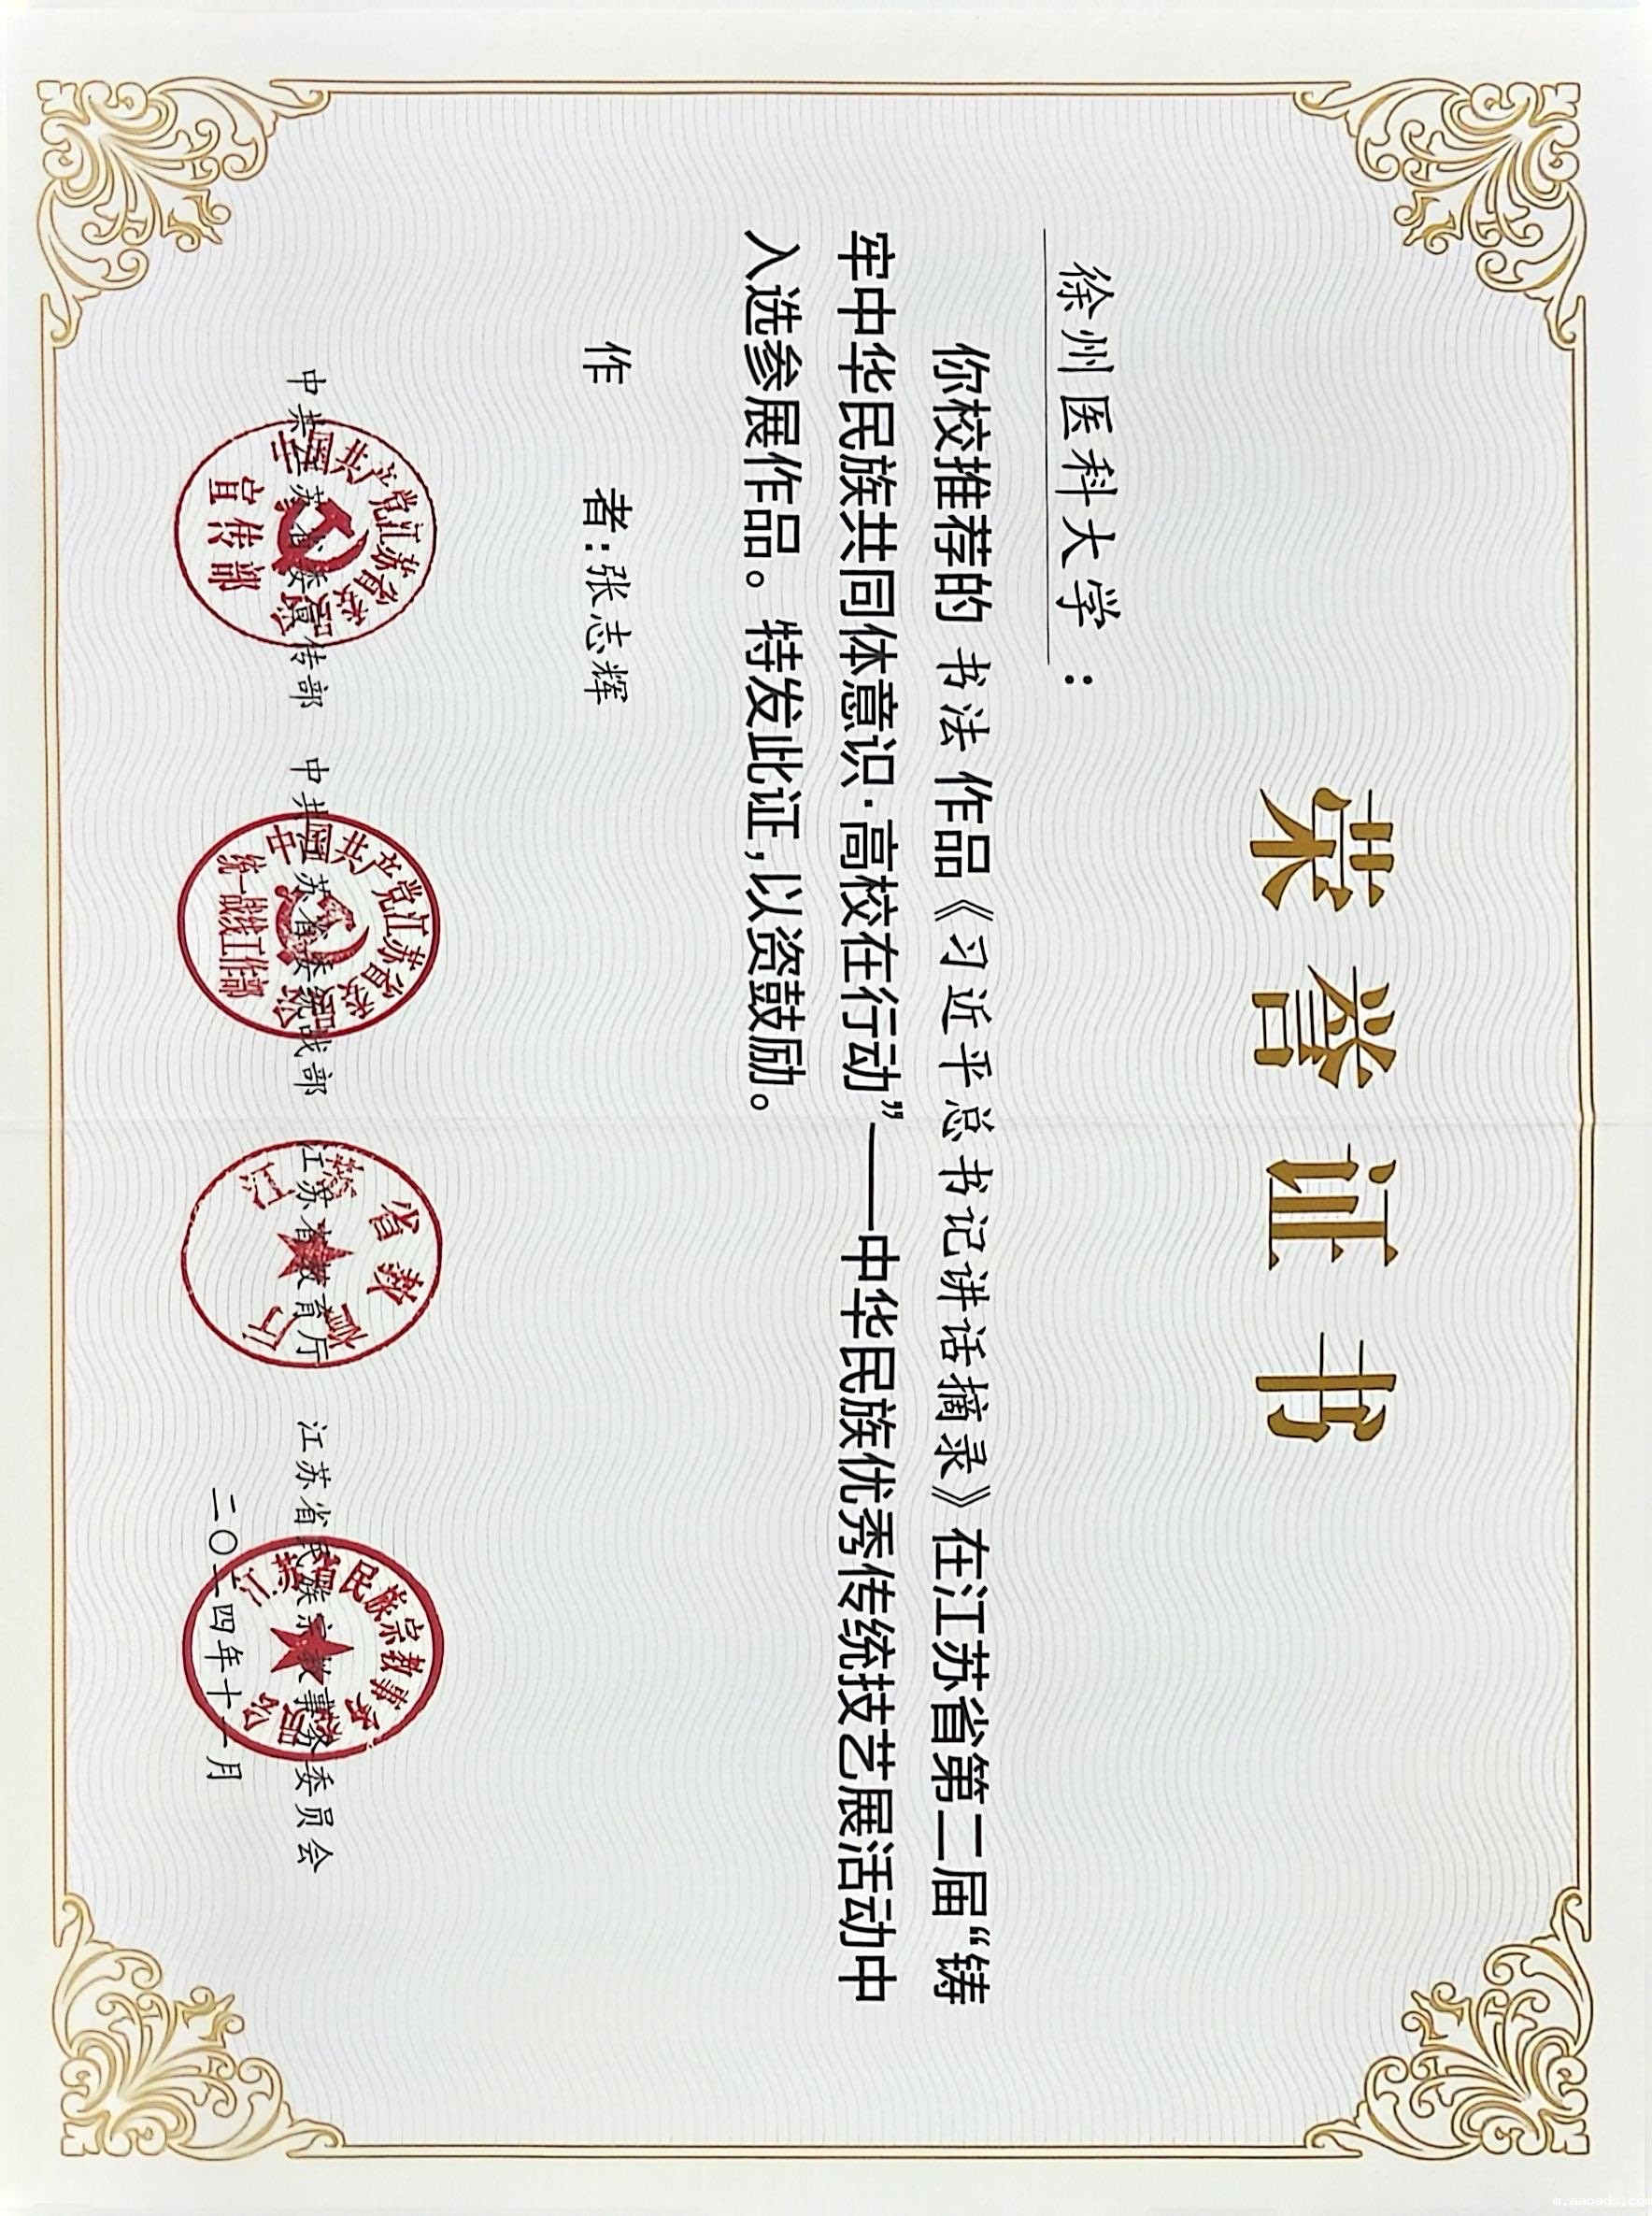 荣誉证书
徐州医科大学：
你校推荐的 书法 作品《习近平总书记讲话摘录》在江苏省第二届“铸
牢中华民族共同体意识·高校在行动”——中华民族优秀传统技艺展活动中
入选参展作品。特发此证，以资鼓励。
作 者：张志辉
中共江苏省委宣传部 中共江苏省委统战部 江苏省教育厅 江苏省民族宗教事务委员会
二〇二四年十一月
中国共产党江苏省委员会
宣传部
中国共产党江苏省委员会
统一战线工作部
江苏省教育厅
江苏省民族宗教事务委员会
m.aaoads.com